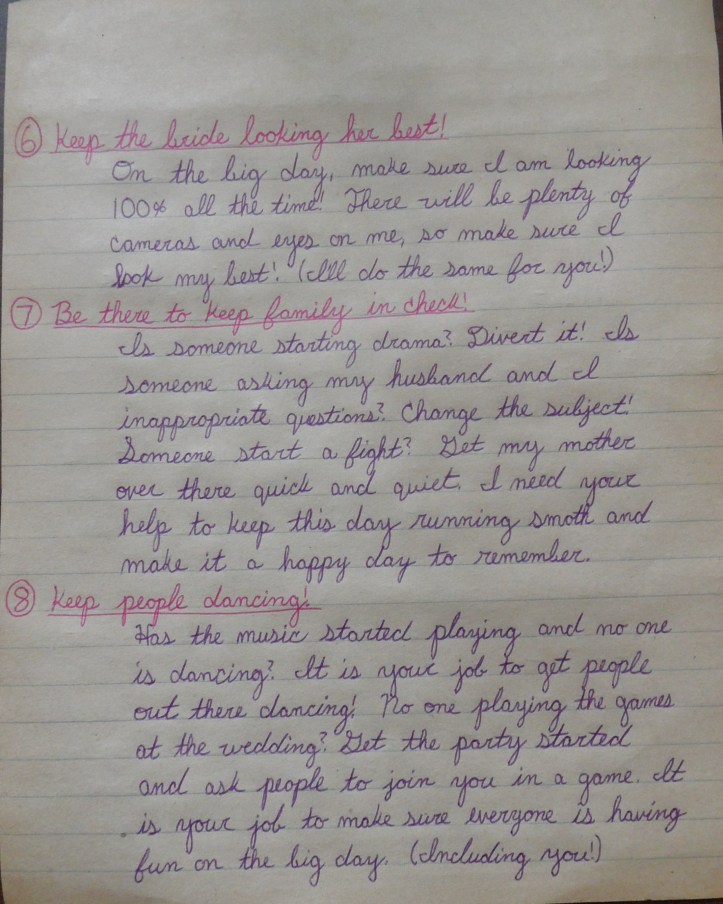 ⑥ Keep the bride looking her best!
On the big day, make sure I am looking
100% all the time! There will be plenty of
cameras and eyes on me, so make sure I
look my best! (I'll do the same for you!)
⑦ Be there to keep family in check!
Is someone starting drama? Divert it! Is
someone asking my husband and I
inappropriate questions? Change the subject!
Someone start a fight? Get my mother
over there quick and quiet. I need your
help to keep this day running smoth and
make it a happy day to remember.
⑧ Keep people dancing!
Has the music started playing and no one
is dancing? It is your job to get people
out there dancing! No one playing the games
at the wedding? Get the party started
and ask people to join you in a game. It
is your job to make sure everyone is having
fun on the big day. (Including you!)